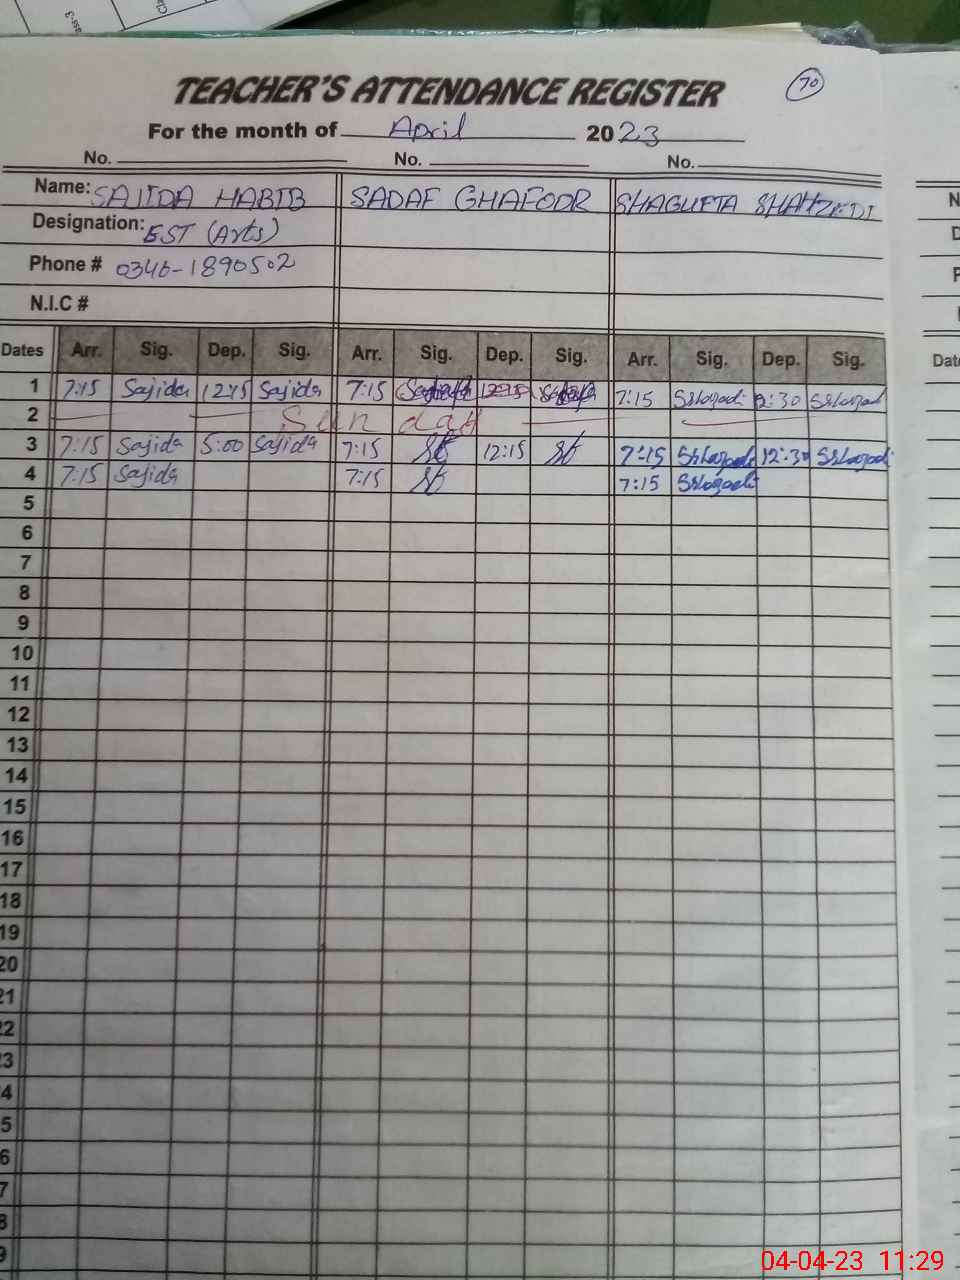 ass-3
TEACHER'S ATTENDANCE REGISTER 70
For the month of April 2023
No. No. No.
Name: SAJIDA HABIB SADAF GHAFOOR SHAGUFTA SHAHZADI
Designation: EST (Arts)
Phone # 0346-1890502
N.I.C #
Dates Arr. Sig. Dep. Sig. Arr. Sig. Dep. Sig. Arr. Sig. Dep. Sig. Date
1 7:15 Sajida 12:15 Sajida 7:15 7:15 Sshazadi 12:30 Sshazadi
2 Sunday
3 7:15 Sajida 5:00 Sajida 7:15 12:15 7:15 Sshazadi 12:30 Sshazadi
4 7:15 Sajida 7:15 7:15 Sshazadi
5
6
7
8
9
10
11
12
13
14
15
16
17
18
19
20
21
22
3
4
5
6
7
8
9
04-04-23 11:29